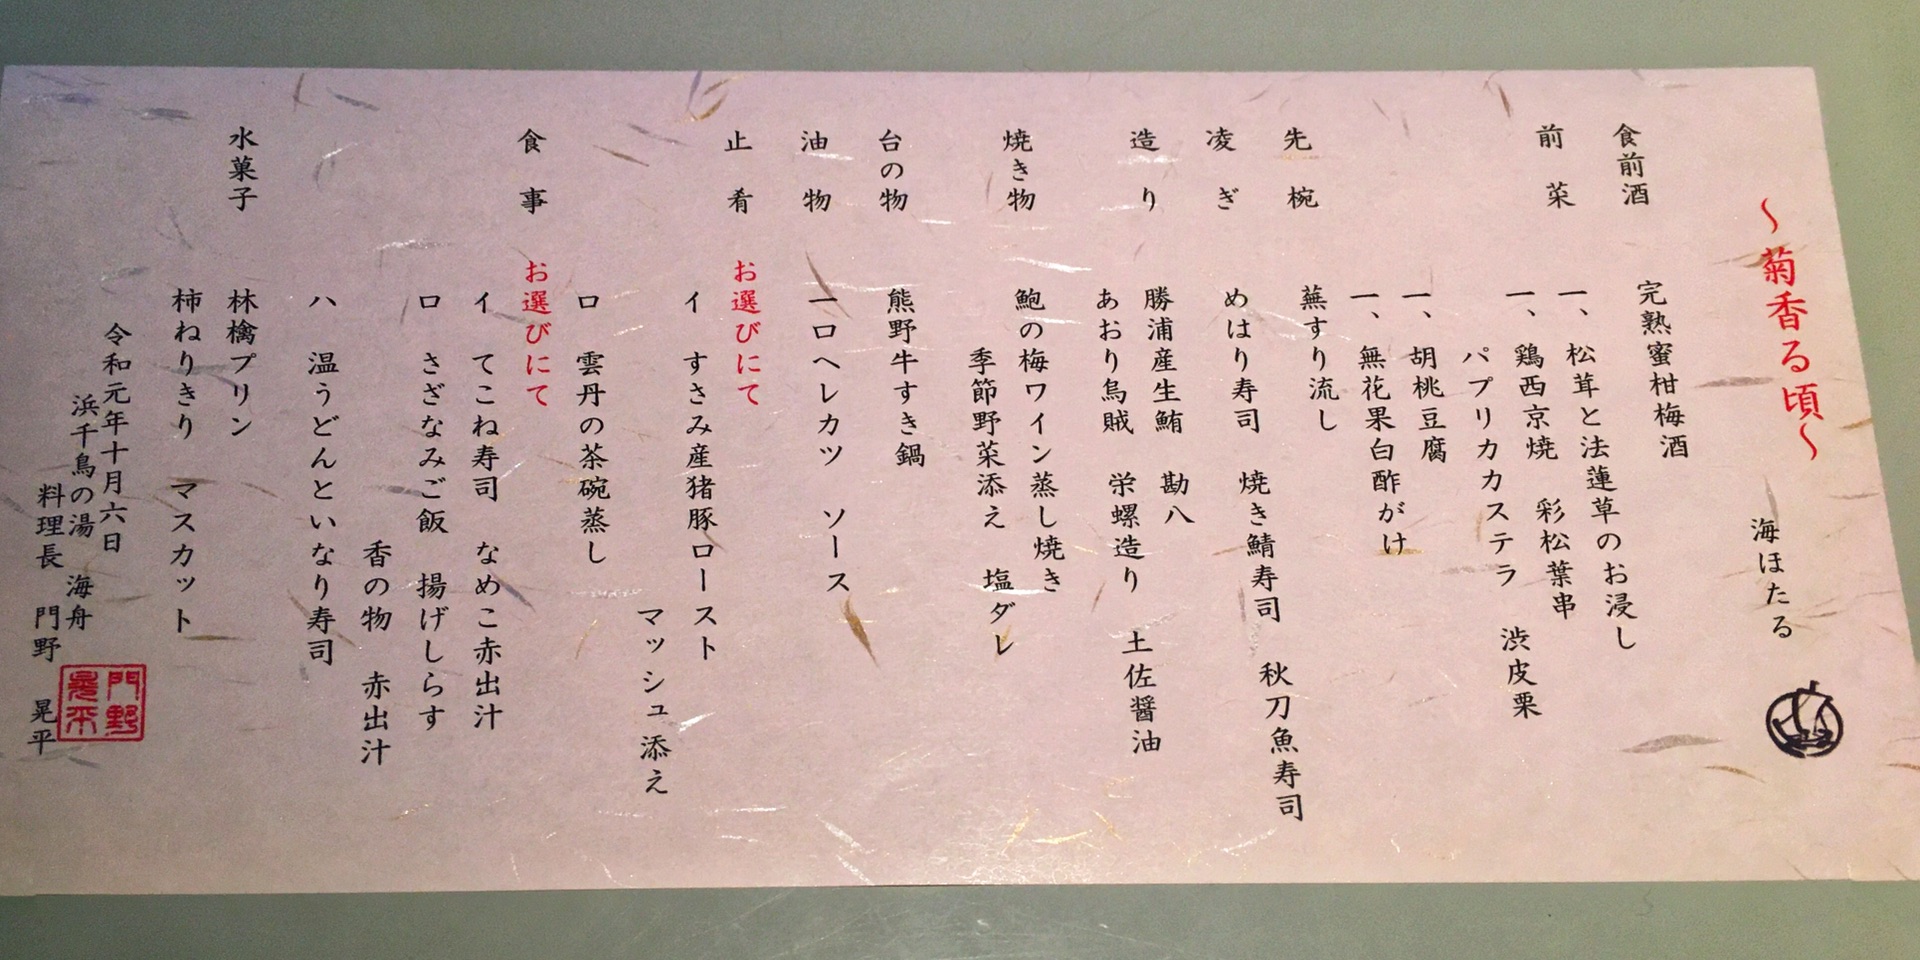 ～菊香る頃～
海ほたる
食前酒 完熟蜜柑梅酒
前菜 一、松茸と法蓮草のお浸し
一、鶏西京焼 彩松葉串
パプリカカステラ 渋皮栗
一、胡桃豆腐
一、無花果白酢がけ
先椀 蕪すり流し
凌ぎ めはり寿司 焼き鯖寿司 秋刀魚寿司
造り 勝浦産生鮪 勘八
あおり烏賊 栄螺造り 土佐醤油
焼き物 鮑の梅ワイン蒸し焼き
季節野菜添え 塩ダレ
台の物 熊野牛すき鍋
油物 一口ヘレカツ ソース
止肴 お選びにて
イ すさみ産猪豚ロースト
マッシュ添え
ロ 雲丹の茶碗蒸し
食事 お選びにて
イ てこね寿司 なめこ赤出汁
ロ さざなみご飯 揚げしらす
香の物 赤出汁
ハ 温うどんといなり寿司
水菓子 林檎プリン
柿ねりきり マスカット
令和元年十月六日
浜千鳥の湯 海舟
料理長 門野 晃平
門野晃平